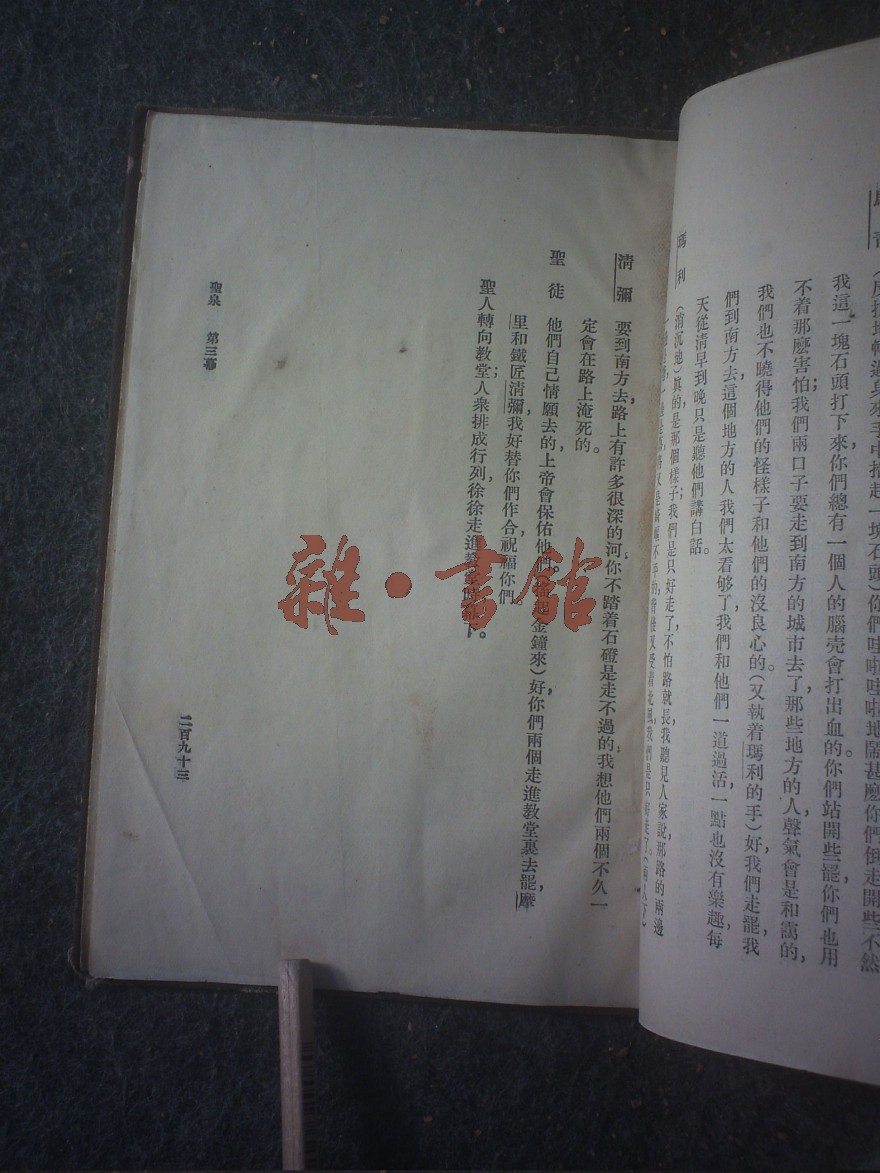 （反抗地轉過身來手中拾起一塊石頭）你們哇啦哇啦地鬧甚麼你們倒走開些不然
我這一塊石頭打下來你們總有一個人的腦壳會打出血的你們站開些罷你們也用
不着那麼害怕我們兩口子要走到南方的城市去了那些地方的人聲氣會是和靄的，
我們也不曉得他們的怪樣子和他們的沒良心的（又執着瑪利的手）好我們走罷我
們到南方去這個地方的人我們太看够了，我們和他們一道過活，一點也沒有樂趣每
天從淸早到晚只是聽他們講白話。
瑪利 （消沉地）眞的是那個樣子；我們是只好走了，不怕路就長，我聽見人家說那路的兩邊
淸彌 要到南方去，路上有許多很深的河；你不踏着石磴是走不過的，我想他們兩個不久一
定會在路上淹死的。
聖徒 他們自己情願去的，上帝會保佑他們。金鐘來）好，你們兩個走進教堂裏去罷，摩
里和鐵匠淸彌，我好替你們作合，祝福你們。
聖人轉向教堂；人衆排成行列，徐徐走進教堂時下。
聖泉 第三幕
二百九十三
雜·書館